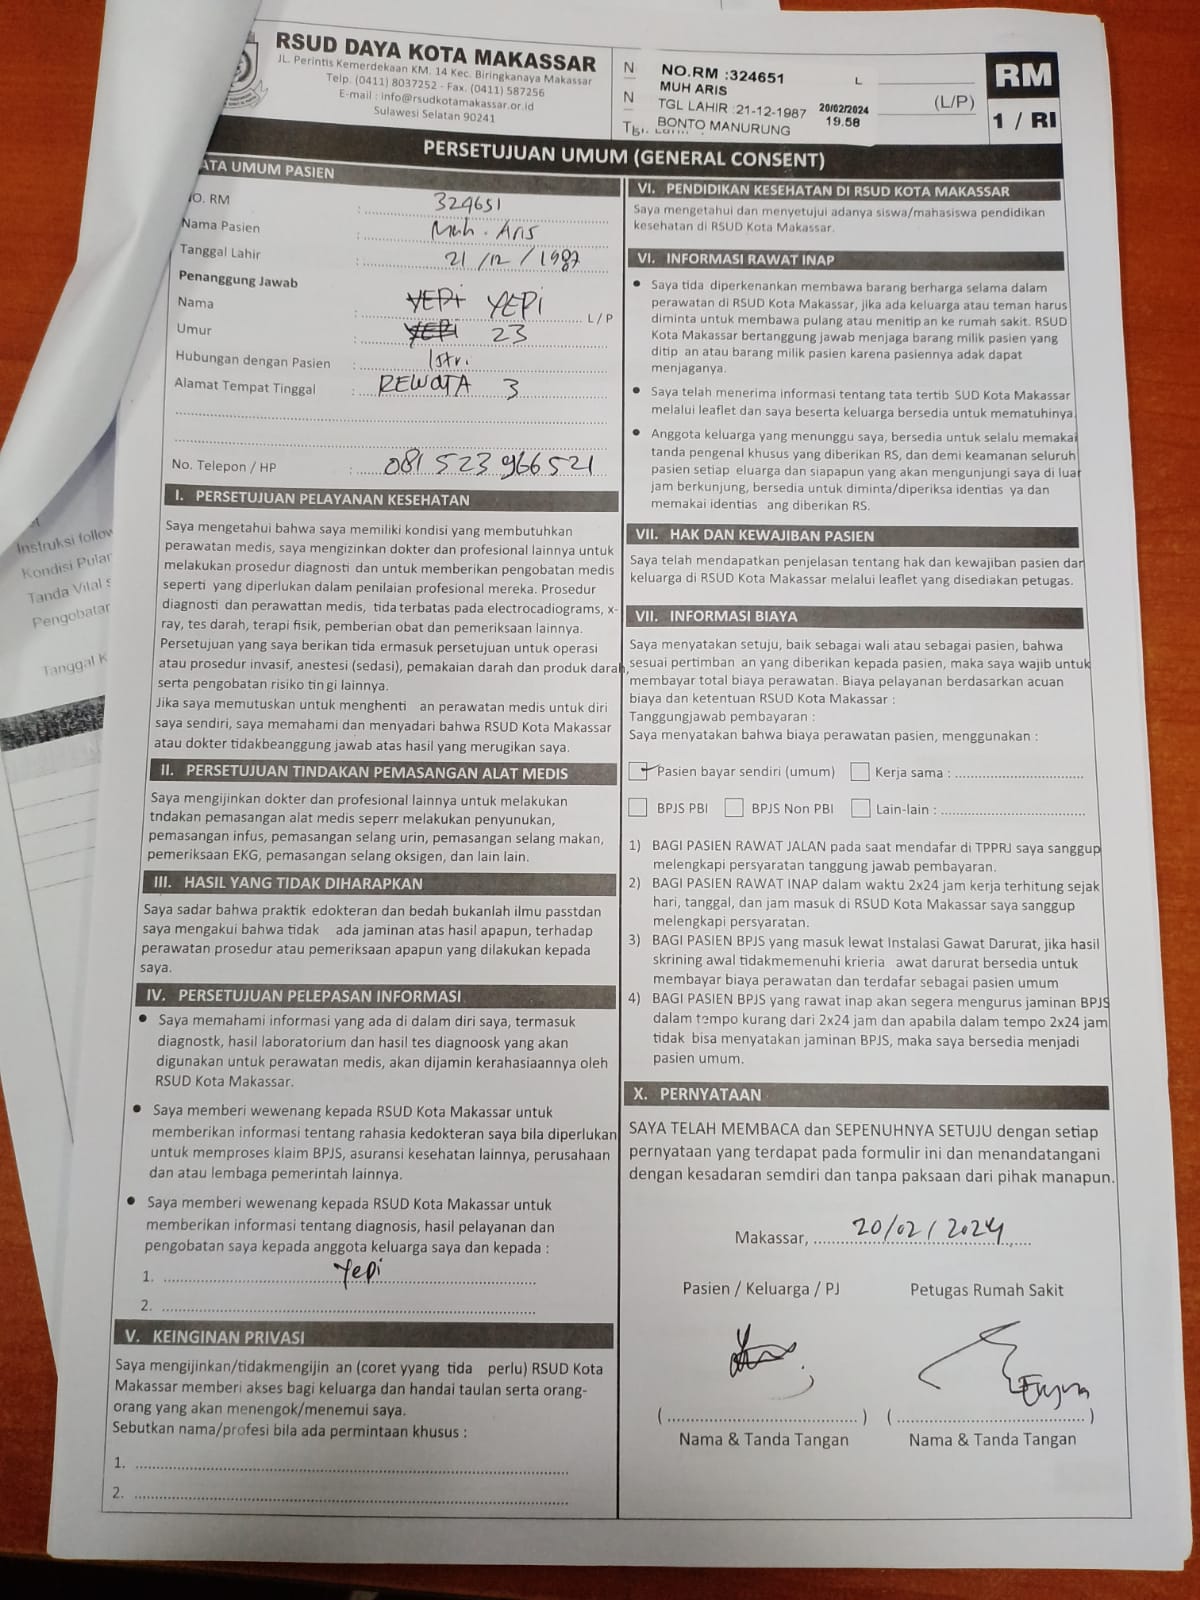 RSUD DAYA KOTA MAKASSAR
JL. Perintis Kemerdekaan KM. 14 Kec. Biringkanaya Makassar
Telp. (0411) 8037252 - Fax. (0411) 587256
E-mail : info@rsudkotamakassar.or.id
Sulawesi Selatan 90241
N
N
Tgl. Lahir :
NO.RM :324651 L
MUH ARIS
TGL LAHIR :21-12-1987 20/02/2024
BONTO MANURUNG 19.58
(L/P)
RM
1 / RI
PERSETUJUAN UMUM (GENERAL CONSENT)
ATA UMUM PASIEN
NO. RM : 324651
Nama Pasien : Muh. Aris
Tanggal Lahir : 21 / 12 / 1987
Penanggung Jawab
Nama : YEPI YEPI L / P
Umur : YEPI 23
Hubungan dengan Pasien : Istri.
Alamat Tempat Tinggal : REWATA 3
No. Telepon / HP : 081 523 966 521
I. PERSETUJUAN PELAYANAN KESEHATAN
Saya mengetahui bahwa saya memiliki kondisi yang membutuhkan
perawatan medis, saya mengizinkan dokter dan profesional lainnya untuk
melakukan prosedur diagnosti dan untuk memberikan pengobatan medis
seperti yang diperlukan dalam penilaian profesional mereka. Prosedur
diagnosti dan perawattan medis, tida terbatas pada electrocadiograms, x-
ray, tes darah, terapi fisik, pemberian obat dan pemeriksaan lainnya.
Persetujuan yang saya berikan tida ermasuk persetujuan untuk operasi
atau prosedur invasif, anestesi (sedasi), pemakaian darah dan produk darah,
serta pengobatan risiko tin gi lainnya.
Jika saya memutuskan untuk menghenti an perawatan medis untuk diri
saya sendiri, saya memahami dan menyadari bahwa RSUD Kota Makassar
atau dokter tidakbeanggung jawab atas hasil yang merugikan saya.
II. PERSETUJUAN TINDAKAN PEMASANGAN ALAT MEDIS
Saya mengijinkan dokter dan profesional lainnya untuk melakukan
tndakan pemasangan alat medis seperr melakukan penyunukan,
pemasangan infus, pemasangan selang urin, pemasangan selang makan,
pemeriksaan EKG, pemasangan selang oksigen, dan lain lain.
III. HASIL YANG TIDAK DIHARAPKAN
Saya sadar bahwa praktik edokteran dan bedah bukanlah ilmu passtdan
saya mengakui bahwa tidak ada jaminan atas hasil apapun, terhadap
perawatan prosedur atau pemeriksaan apapun yang dilakukan kepada
saya.
IV. PERSETUJUAN PELEPASAN INFORMASI
• Saya memahami informasi yang ada di dalam diri saya, termasuk
diagnostk, hasil laboratorium dan hasil tes diagnoosk yang akan
digunakan untuk perawatan medis, akan dijamin kerahasiaannya oleh
RSUD Kota Makassar.
• Saya memberi wewenang kepada RSUD Kota Makassar untuk
memberikan informasi tentang rahasia kedokteran saya bila diperlukan
untuk memproses klaim BPJS, asuransi kesehatan lainnya, perusahaan
dan atau lembaga pemerintah lainnya.
• Saya memberi wewenang kepada RSUD Kota Makassar untuk
memberikan informasi tentang diagnosis, hasil pelayanan dan
pengobatan saya kepada anggota keluarga saya dan kepada :
1. Yepi
2.
V. KEINGINAN PRIVASI
Saya mengijinkan/tidakmengijin an (coret yyang tida perlu) RSUD Kota
Makassar memberi akses bagi keluarga dan handai taulan serta orang-
orang yang akan menengok/menemui saya.
Sebutkan nama/profesi bila ada permintaan khusus :
1.
2.
VI. PENDIDIKAN KESEHATAN DI RSUD KOTA MAKASSAR
Saya mengetahui dan menyetujui adanya siswa/mahasiswa pendidikan
kesehatan di RSUD Kota Makassar.
VI. INFORMASI RAWAT INAP
• Saya tida diperkenankan membawa barang berharga selama dalam
perawatan di RSUD Kota Makassar, jika ada keluarga atau teman harus
diminta untuk membawa pulang atau menitip an ke rumah sakit. RSUD
Kota Makassar bertanggung jawab menjaga barang milik pasien yang
ditip an atau barang milik pasien karena pasiennya adak dapat
menjaganya.
• Saya telah menerima informasi tentang tata tertib SUD Kota Makassar
melalui leaflet dan saya beserta keluarga bersedia untuk mematuhinya.
• Anggota keluarga yang menunggu saya, bersedia untuk selalu memakai
tanda pengenal khusus yang diberikan RS, dan demi keamanan seluruh
pasien setiap eluarga dan siapapun yang akan mengunjungi saya di luar
jam berkunjung, bersedia untuk diminta/diperiksa identias ya dan
memakai identias ang diberikan RS.
VII. HAK DAN KEWAJIBAN PASIEN
Saya telah mendapatkan penjelasan tentang hak dan kewajiban pasien dan
keluarga di RSUD Kota Makassar melalui leaflet yang disediakan petugas.
VII. INFORMASI BIAYA
Saya menyatakan setuju, baik sebagai wali atau sebagai pasien, bahwa
sesuai pertimban an yang diberikan kepada pasien, maka saya wajib untuk
membayar total biaya perawatan. Biaya pelayanan berdasarkan acuan
biaya dan ketentuan RSUD Kota Makassar :
Tanggungjawab pembayaran :
Saya menyatakan bahwa biaya perawatan pasien, menggunakan :
Pasien bayar sendiri (umum) Kerja sama :
BPJS PBI BPJS Non PBI Lain-lain :
1) BAGI PASIEN RAWAT JALAN pada saat mendafar di TPPRJ saya sanggup
melengkapi persyaratan tanggung jawab pembayaran.
2) BAGI PASIEN RAWAT INAP dalam waktu 2x24 jam kerja terhitung sejak
hari, tanggal, dan jam masuk di RSUD Kota Makassar saya sanggup
melengkapi persyaratan.
3) BAGI PASIEN BPJS yang masuk lewat Instalasi Gawat Darurat, jika hasil
skrining awal tidakmemenuhi krieria awat darurat bersedia untuk
membayar biaya perawatan dan terdafar sebagai pasien umum
4) BAGI PASIEN BPJS yang rawat inap akan segera mengurus jaminan BPJS
dalam tempo kurang dari 2x24 jam dan apabila dalam tempo 2x24 jam
tidak bisa menyatakan jaminan BPJS, maka saya bersedia menjadi
pasien umum.
X. PERNYATAAN
SAYA TELAH MEMBACA dan SEPENUHNYA SETUJU dengan setiap
pernyataan yang terdapat pada formulir ini dan menandatangani
dengan kesadaran semdiri dan tanpa paksaan dari pihak manapun.
Makassar, 20/02/2024
Pasien / Keluarga / PJ Petugas Rumah Sakit
( ) ( )
Nama & Tanda Tangan Nama & Tanda Tangan
Instruksi follow
Kondisi Pular
Tanda Vital S
Pengobatar
Tanggal K